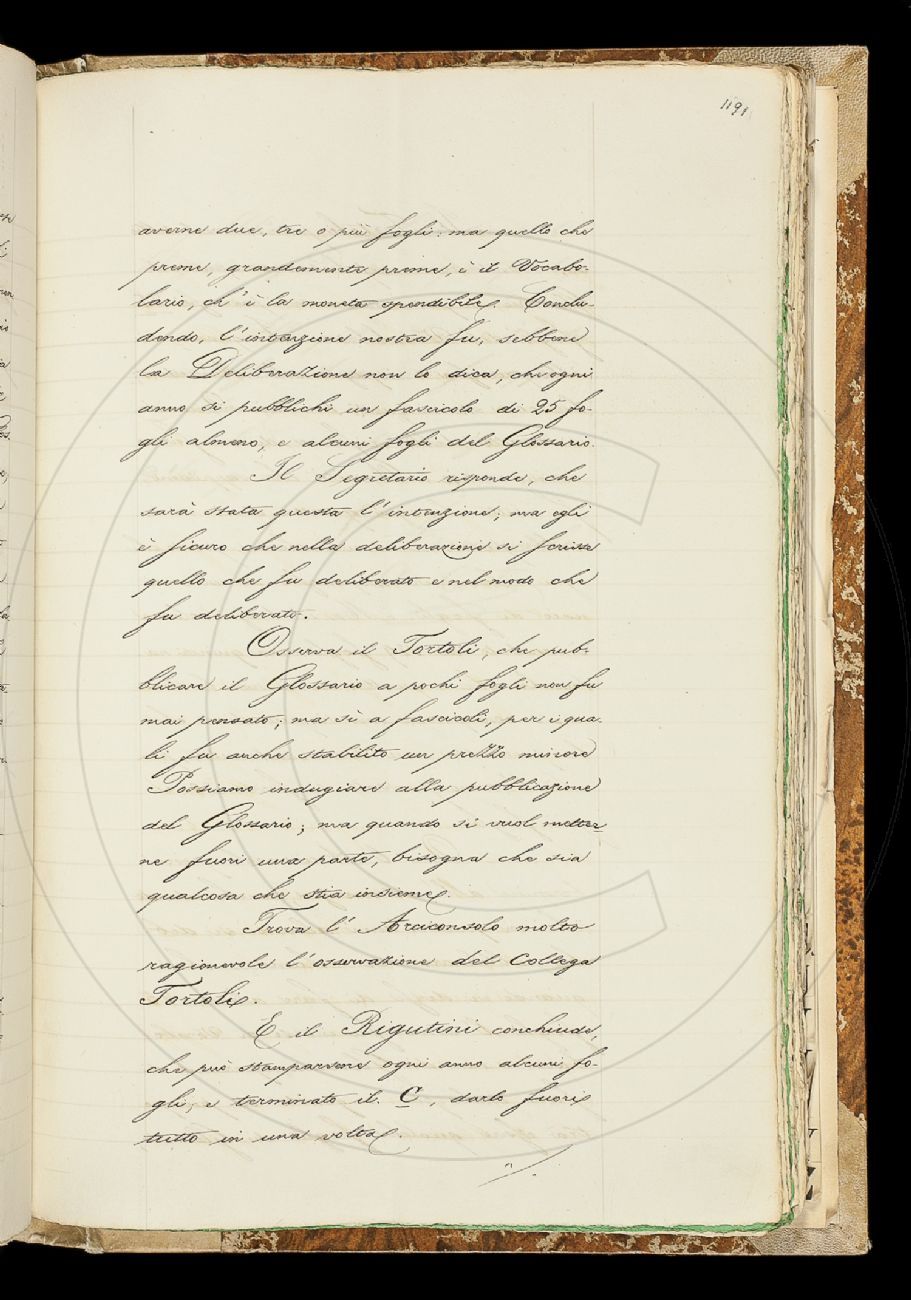 1191
averne due, tre o più fogli: ma quello che
preme, grandemente preme, è il Vocabo-
lario, ch'è la moneta spendibile. Conclu-
dendo, l'intenzione nostra fu, sebbene
la Deliberazione non lo dica, che ogni
anno si pubblichi un fascicolo di 25 fo-
gli almeno, e alcuni fogli del Glossario.
Il Segretario risponde, che
sarà stata questa l'intenzione; ma egli
è sicuro che nella deliberazione si scrisse
quello che fu deliberato e nel modo che
fu deliberato.
Osserva il Tortoli, che pub-
blicare il Glossario a pochi fogli non fu
mai pensato; ma sì a fascicoli, per i qua-
li fu anche stabilito un prezzo minore
Possiamo indugiare alla pubblicazione
del Glossario; ma quando si vuol metter-
ne fuori una parte, bisogna che sia
qualcosa che stia insieme.
Trova l'Arciconsolo molto
ragionevole l'osservazione del Collega
Tortoli.
E il Rigutini conchiude,
che può stamparsene ogni anno alcuni fo-
gli, e terminato il C, darlo fuori
tutto in una volta.